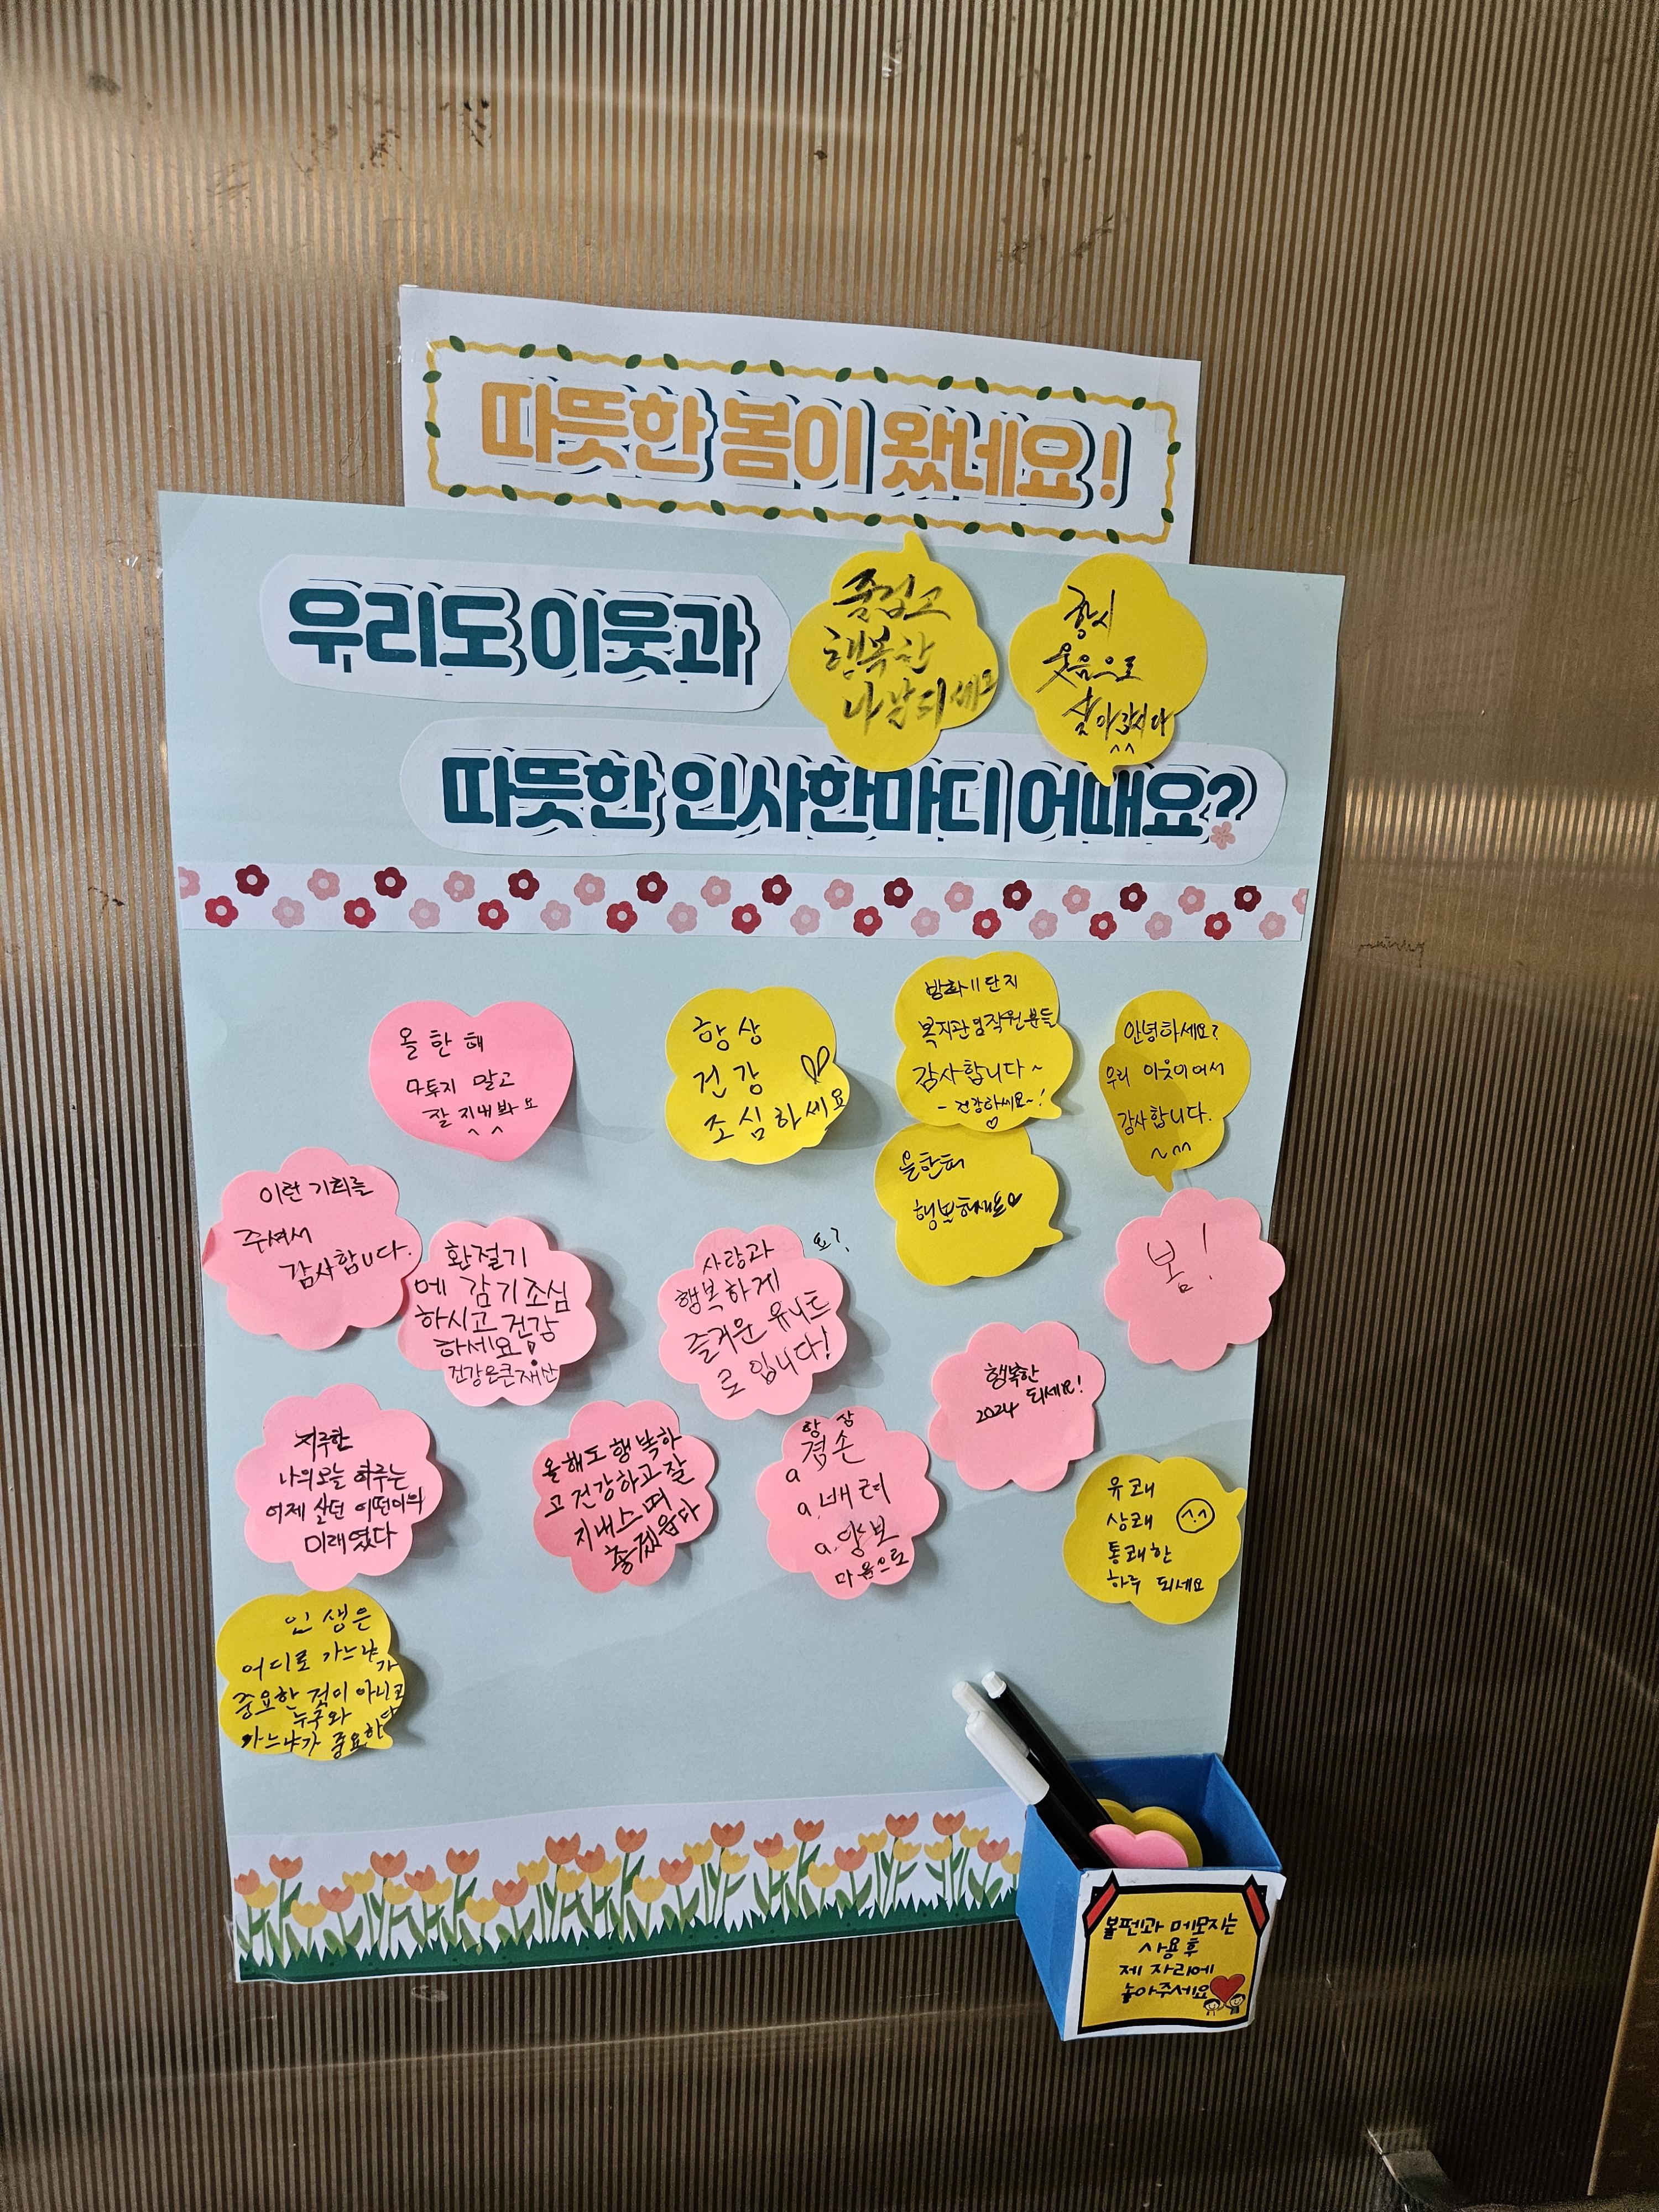 따뜻한 봄이 왔네요!
우리도 이웃과
즐겁고
행복한
나날되세요
항시
웃음으로
살아갑시다
^^
따뜻한 인사한마디 어때요?
올 한 해
다투지 말고
잘 지내봐요
^ ^
항상
건강
조심하세요
방화11단지
복지관및직원분들
감사합니다~
- 건강하세요~!
안녕하세요?
우리 이웃이어서
감사합니다.
~^^
올한해
행복하세요
이런 기회를
주셔서
감사합니다.
환절기
에 감기조심
하시고 건강
하세요!
건강은큰재산
사랑과
행복하게
즐거운 유니트
로 입니다!
요?
봄!
행복한
2024 되세요!
지루한
나의오늘 하루는
어제 살던 어떤이의
미래였다
올해도 행복하
고 건강하고 잘
지내스며
좋겠읍다
항상
겸손
a
a. 배려
a. 양보
마음으로
유쾌
상쾌
통쾌한
하루 되세요
인생은
어디로 가느냐가
중요한 것이 아니고
누구와
가느냐가 중요한다
볼펜과 메모지는
사용후
제 자리에
놓아주세요